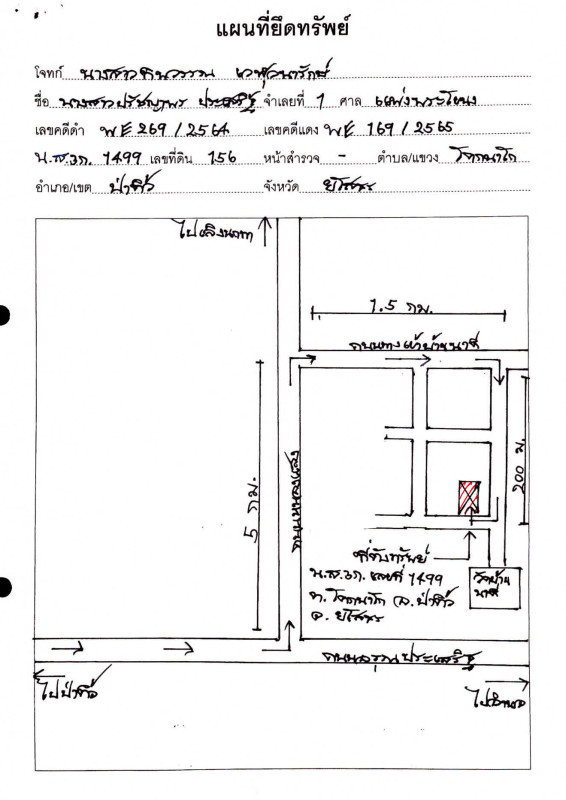 แผนที่ยึดทรัพย์
โจทก์ นางสาวทินวรรณ
ชื่อ นางสาวปรัชญาพร ประเสริฐ จำเลยที่ 1 ศาล แพ่งพระโขนง
เลขคดีดำ พE 269 / 2564 เลขคดีแดง พE 169 / 2565
น.ส.3ก. 1499 เลขที่ดิน 156 หน้าสำรวจ - ตำบล/แขวง โคกนาโก
อำเภอ/เขต ป่าติ้ว จังหวัด ยโสธร
ไปเลิงนกทา
1.5 กม.
ถนนทางเข้าบ้านนาดี
5 กม.
200 ม.
ที่ตั้งทรัพย์
น.ส.3ก. เลขที่ 1499
ต. โคกนาโก อ. ป่าติ้ว
จ. ยโสธร
วัดบ้าน
นาดี
ถนนอรุณประเสริฐ
ไปป่าติ้ว